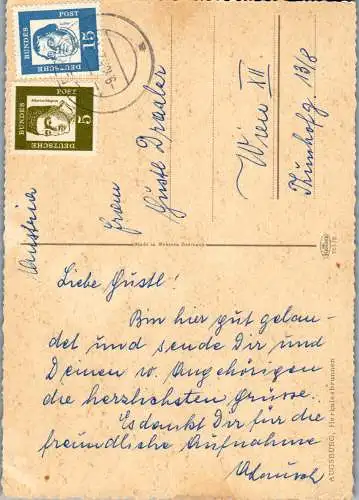 15
DEUTSCHE
BUNDES
POST
5
DEUTSCHE
BUNDES
POST
Austria
Frau
Gustl
Wien XII
13/8
Made in Western Germany
Liebe Gustl!
Bin hier gut gelan-
det und sende Dir und
Deinen w. Angehörigen
die herzlichsten Grüsse.
Es dankt Dir für die
freundliche Aufnahme
AUGSBURG, Herkulesbrunnen